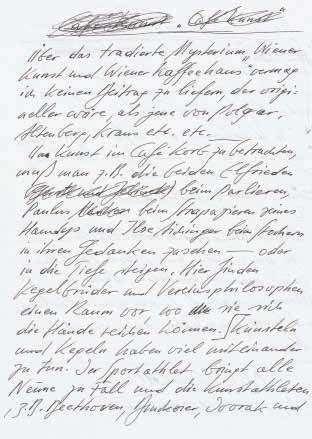 „Café Kunst"
Über das tradierte Mysterium „Wiener
Kunst und Wiener Kaffeehaus" vermag
ich keinen Beitrag zu liefern, der origi-
neller wäre, als jene von Polgar,
Altenberg, Kraus etc. etc.
Um Kunst im Café Korb zu betrachten,
muß man z.B. die beiden Elfrieden
beim Parlieren,
Paulus beim Strapazieren seines
Handys und Ilse Aichinger beim
in ihren Gedanken zusehen — oder
in die Tiefe steigen. Hier finden
Kegelbrüder und Vereinsphilosophen
einen Raum vor, wo sie sich
die Hände reiben können. Künsteln
und Kegeln haben viel miteinander
zu tun. Der Sportathlet bringt alle
Neune zu Fall und die Kunstathleten
, z.B. Beethoven, Bruckner, Dvorak und